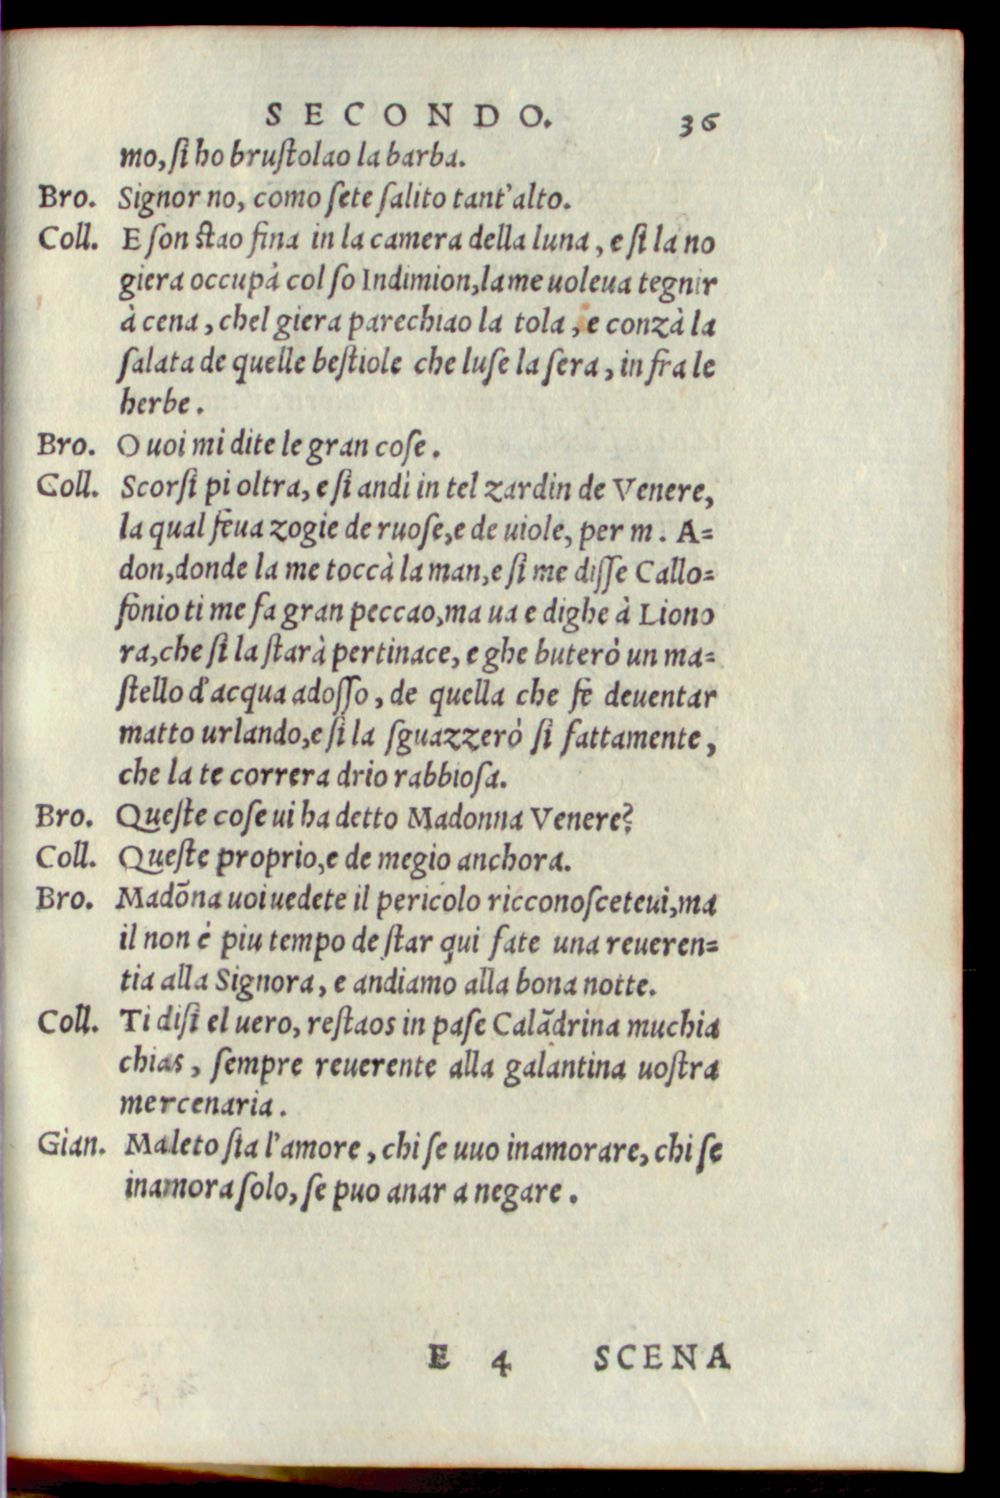 SECONDO. 36
mo, ſi ho bruſtolao la barba.
Bro. Signor no, como ſete ſalito tant'alto.
Coll. E ſon ſtao fina in la camera della luna, e ſi la no
giera occupà col ſo Indimion, la me uoleua tegnir
à cena, chel giera parechiao la tola, e conzà la
ſalata de quelle beſtiole che luſe la ſera, in fra le
herbe.
Bro. O uoi mi dite le gran coſe.
Coll. Scorſi pi oltra, e ſi andì in tel zardin de Venere,
la qual feua zogie de ruoſe, e de uiole, per m. A=
don, donde la me toccà la man, e ſi me diſſe Callo=
fonio ti me fa gran peccao, ma ua e dighe à Liono
ra, che ſi la ſtarà pertinace, e ghe buterò un ma=
ſtello d'acqua adoſſo, de quella che fè deuentar
matto urlando, e ſi la ſguazzerò ſi fattamente,
che la te correra drio rabbioſa.
Bro. Queſte coſe ui ha detto Madonna Venere?
Coll. Queſte proprio, e de megio anchora.
Bro. Madõna uoi uedete il pericolo ricconoſceteui, ma
il non è piu tempo de ſtar qui fate una reueren=
tia alla Signora, e andiamo alla bona notte.
Coll. Ti diſi el uero, reſtaos in paſe Calãdrina muchia
chias, ſempre reuerente alla galantina uoſtra
mercenaria.
Gian. Maleto ſia l'amore, chi ſe uuo inamorare, chi ſe
inamora ſolo, ſe puo anar a negare.
E 4 SCENA